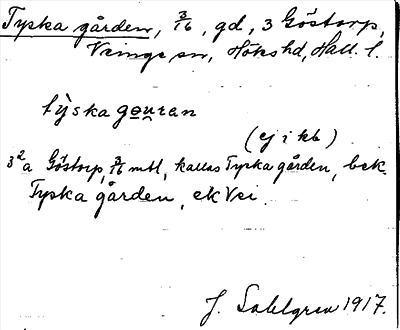 Tyska gården, 3/16, gd, 3 Göstorp,
Veinge sn, Höks hd, Hall. l.
tỳska gou̯ran
(ej i kb)
3²a Göstorp, 3/16 mtl, kallas Tyska gården, bek.
Tyska gården, ek Vei.
J. Sahlgren 1917.